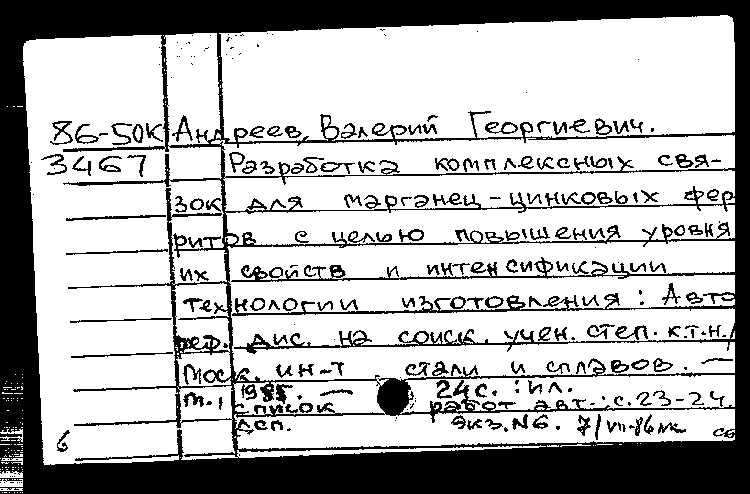 86-50К Андреев, Валерий Георгиевич.
3467 Разработка комплексных свя-
зок для марганец-цинковых фер
ритов с целью повышения уровня
их свойств и интенсификации
технологии изготовления: Авто
реф. дис. на соиск. учен. степ. к.т.н./
Моск. ин-т стали и сплавов. —
М., 1985. — 24с. : ил.
список работ авт.: с.23-24.
дсп. экз.N6. 7/VII-86
6